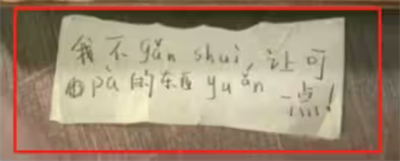 我不gǎn shui,让可
pà的东西yuǎn一点!